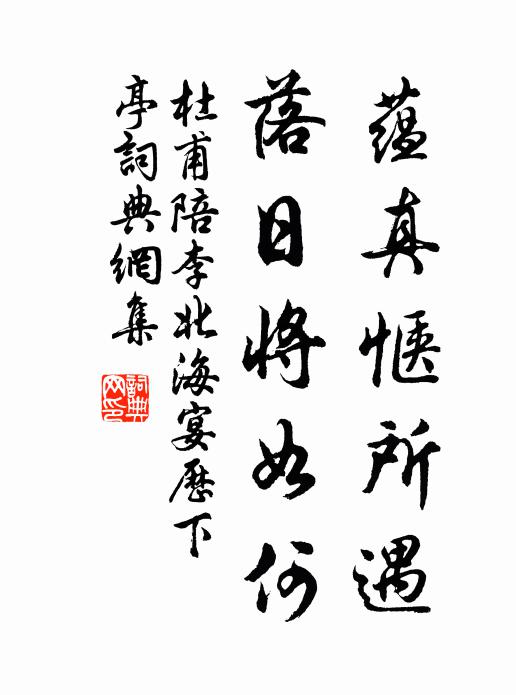 蕴真惬所遇
落日将如何
杜甫陪李北海宴歷下
亭詞典網集
詞典网印